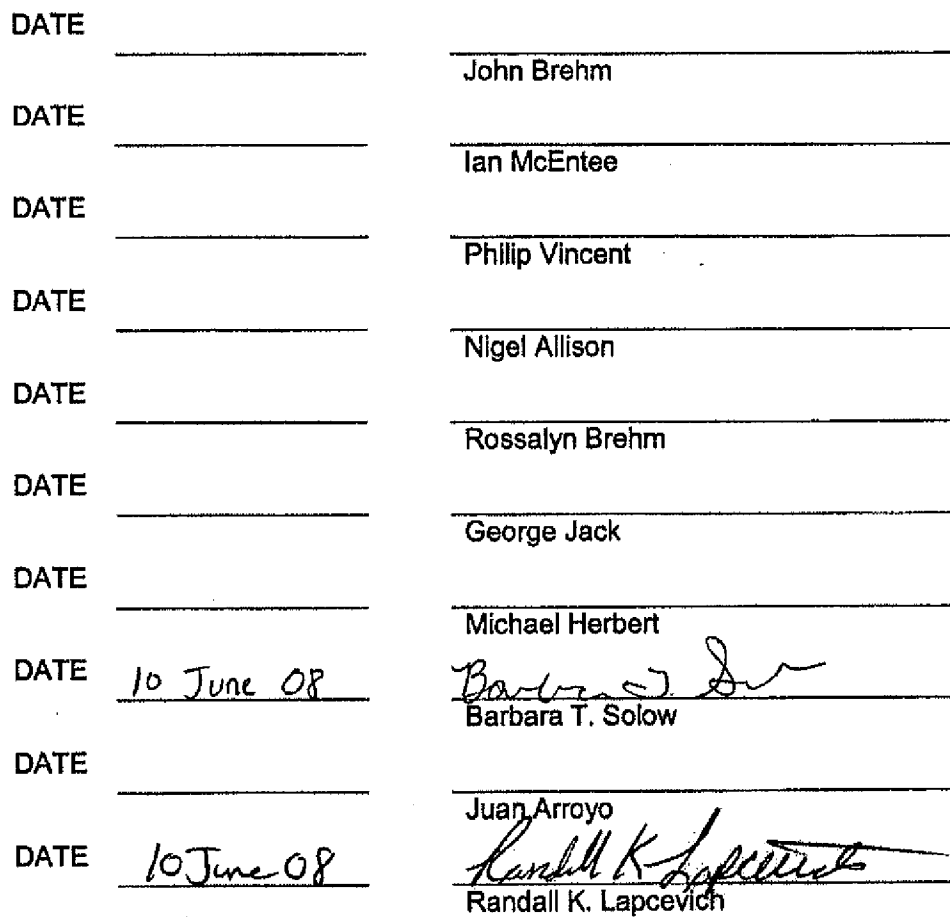 DATE
John Brehm
DATE
Ian McEntee
DATE
Philip Vincent
DATE
Nigel Allison
DATE
Rossalyn Brehm
DATE
George Jack
DATE
Michael Herbert
DATE 10 June 08 Barbara T. S
Barbara T. Solow
DATE
Juan Arroyo
DATE 10 June 08 Randall K Lapcevich
Randall K. Lapcevich